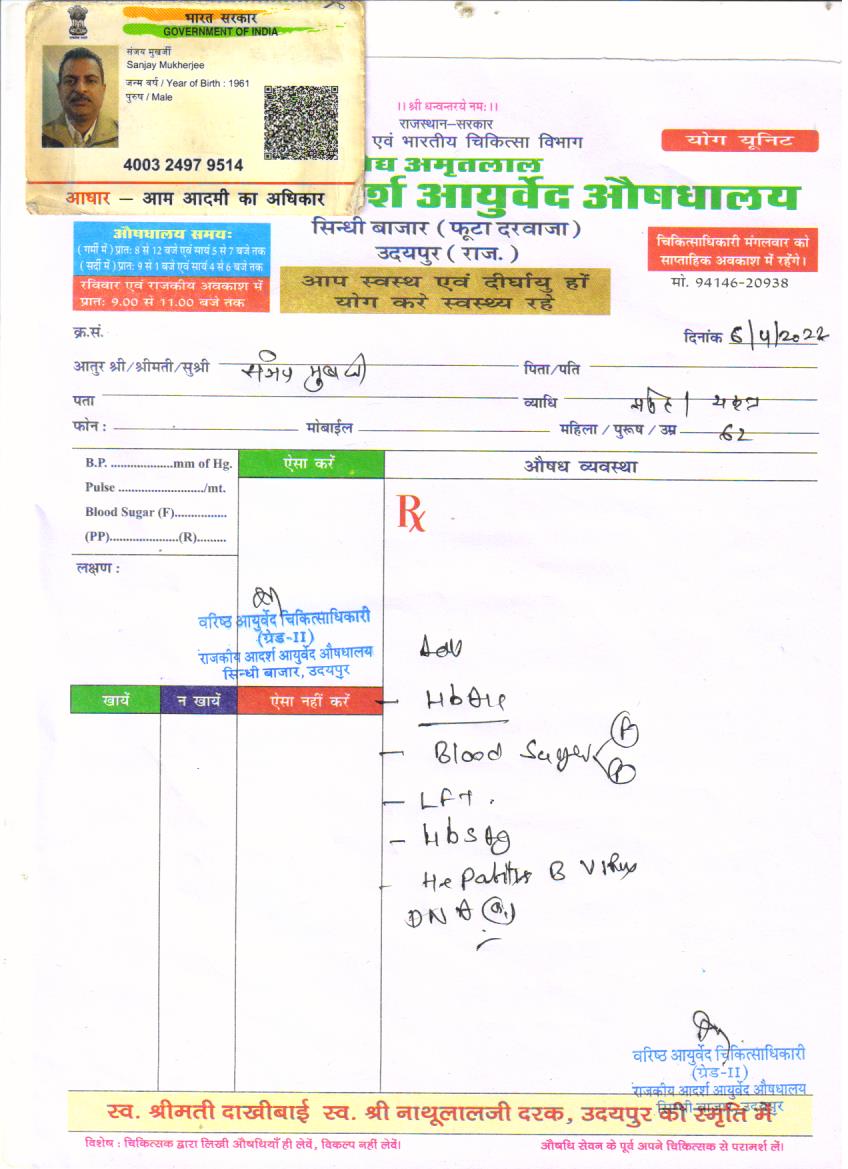 भारत सरकार
GOVERNMENT OF INDIA
संजय मुखर्जी
Sanjay Mukherjee
जन्म वर्ष / Year of Birth : 1961
पुरुष / Male
4003 2497 9514
आधार – आम आदमी का अधिकार
।। श्री धन्वन्तरये नमः ।।
राजस्थान–सरकार
एवं भारतीय चिकित्सा विभाग
योग यूनिट
द्य अमृतलाल
र्श आयुर्वेद औषधालय
सिन्धी बाजार ( फूटा दरवाजा )
उदयपुर ( राज. )
औषधालय समयः
( गर्मी में ) प्रातः 8 से 12 बजे एवं सायं 5 से 7 बजे तक
( सर्दी में ) प्रातः 9 से 1 बजे एवं सायं 4 से 6 बजे तक
रविवार एवं राजकीय अवकाश में
प्रातः 9.00 से 11.00 बजे तक
आप स्वस्थ एवं दीर्घायु हों
योग करे स्वस्थ्य रहे
चिकित्साधिकारी मंगलवार को
साप्ताहिक अवकाश में रहेंगे।
मो. 94146-20938
क्र.सं. दिनांक 6/4/2022
आतुर श्री/श्रीमती/सुश्री संजय मुखर्जी पिता/पति
पता व्याधि यकृत
फोन : मोबाईल महिला / पुरूष / उम्र 62
B.P. ...................mm of Hg. ऐसा करें औषध व्यवस्था
Pulse ........................../mt.
Blood Sugar (F)................
(PP).....................(R).........
Rx
लक्षण :
वरिष्ठ आयुर्वेद चिकित्साधिकारी
(ग्रेड-II)
राजकीय आदर्श आयुर्वेद औषधालय
सिन्धी बाजार, उदयपुर
Adv
खायें न खायें ऐसा नहीं करें
– HbA1c
– Blood Sugar F P
– LFT .
– HbSAg
- Hepatitis B Virus
DNA
वरिष्ठ आयुर्वेद चिकित्साधिकारी
(ग्रेड-II)
राजकीय आदर्श आयुर्वेद औषधालय
सिन्धी बाजार, उदयपुर
स्व. श्रीमती दाखीबाई स्व. श्री नाथूलालजी दरक, उदयपुर की स्मृति में
विशेष : चिकित्सक द्वारा लिखी औषधियाँ ही लेवें, विकल्प नहीं लेवें। औषधि सेवन के पूर्व अपने चिकित्सक से परामर्श लें।